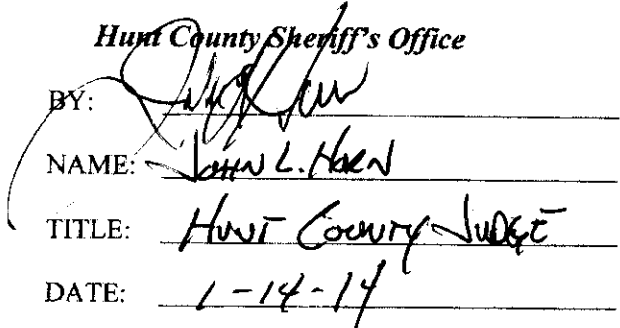 Hunt County Sheriff's Office
BY:
NAME: John L. Horn
TITLE: Hunt County Judge
DATE: 1-14-14